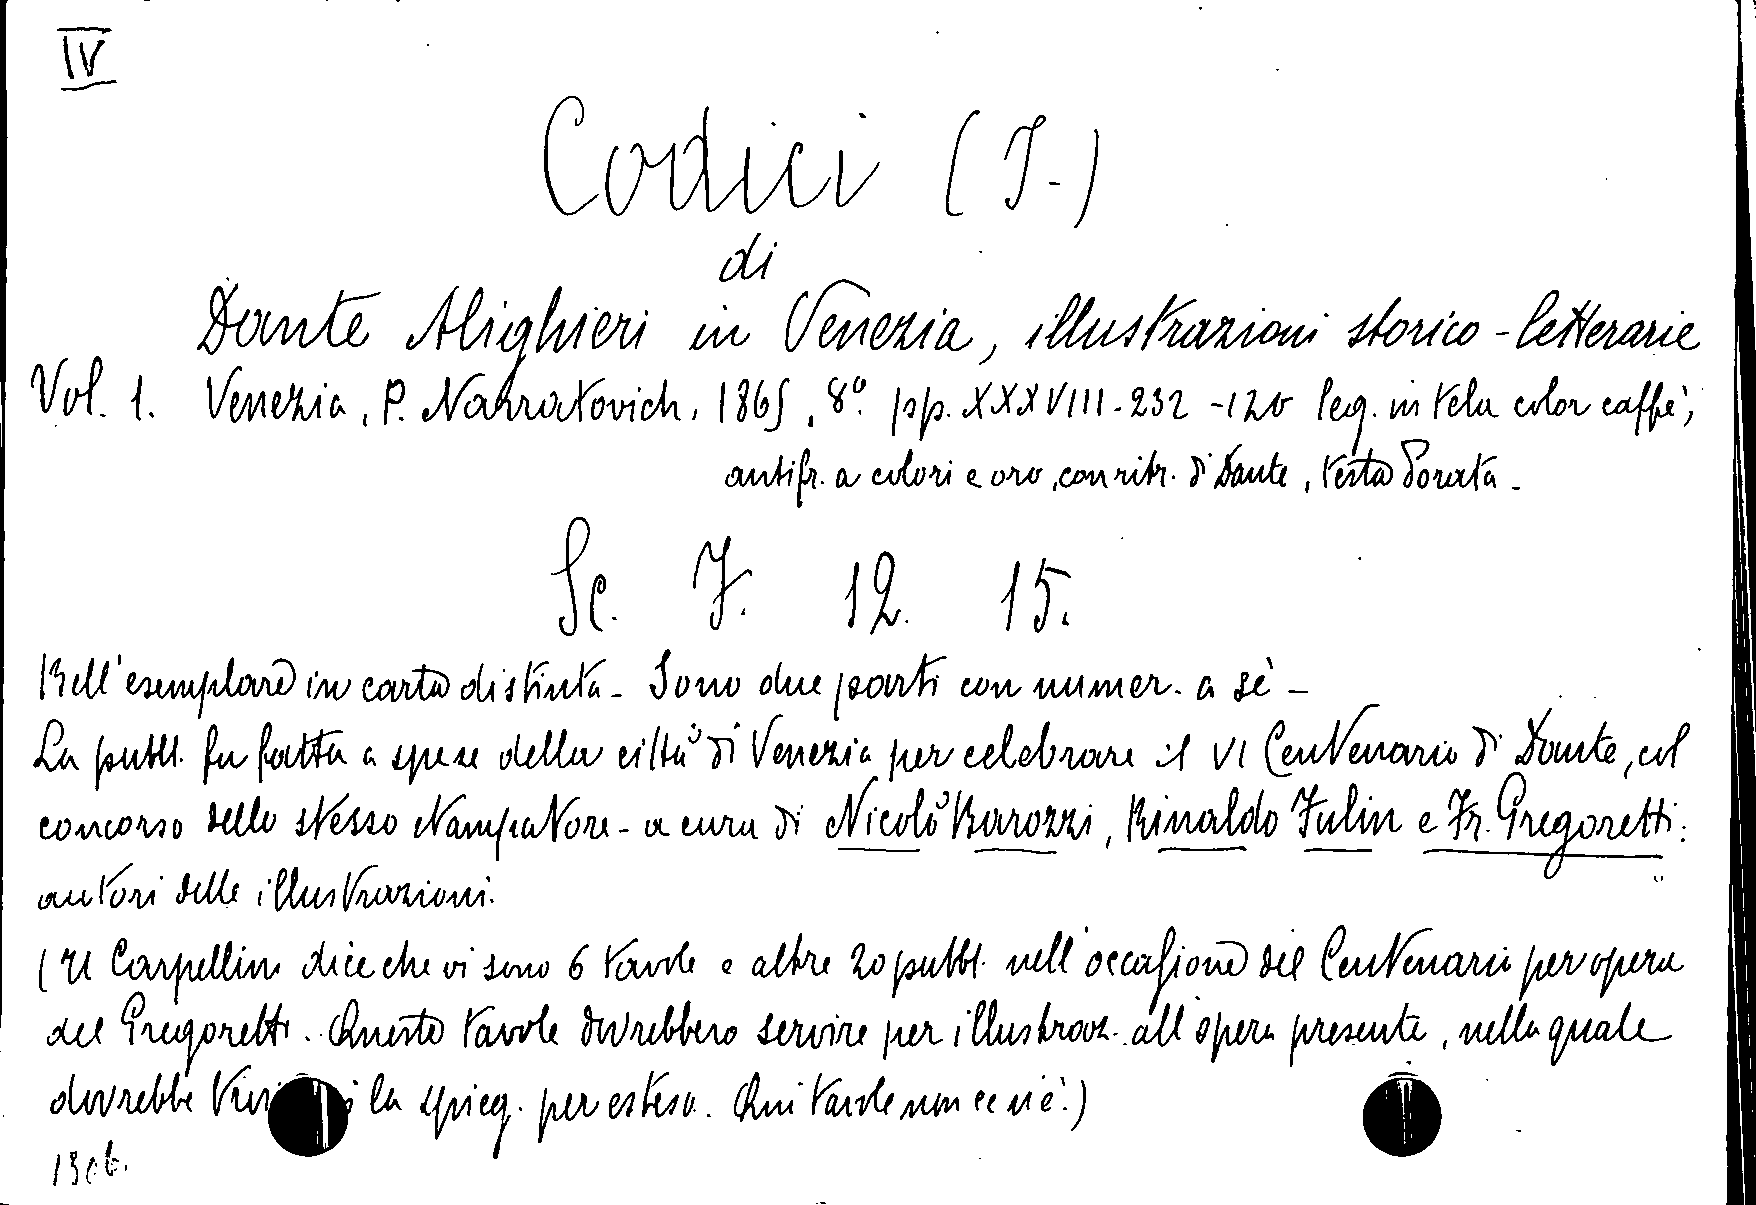 IV
Codici (I.)
di
Dante Alighieri in Venezia, illustrazioni storico-letterarie
Vol. 1. Venezia, P. Narratovich, 1865, 8º. pp. XXXVIII-232-120 leg. in tela color caffè,
antifr. a colori e oro, con ritr. di Dante, testa dorata -
Sc. F. 12. 15.
Bell'esemplare in carta distinta - Sono due parti con numer. a sè -
La pubbl. fu fatta a spese della città di Venezia per celebrare il VI Centenario di Dante, col
concorso dello stesso stampatore - a cura di Nicolò Barozzi, Rinaldo Fulin e Fr. Gregoretti:
autori delle illustrazioni.
(Il Carpellini dice che vi sono 6 tavole e altre 20 pubbl. nell'occasione del Centenario per opera
del Gregoretti. Queste tavole dovrebbero servire per illustraz. all'opera presente, nella quale
dovrebbe la spieg. per esteso. Qui tavole non ce n'è.)